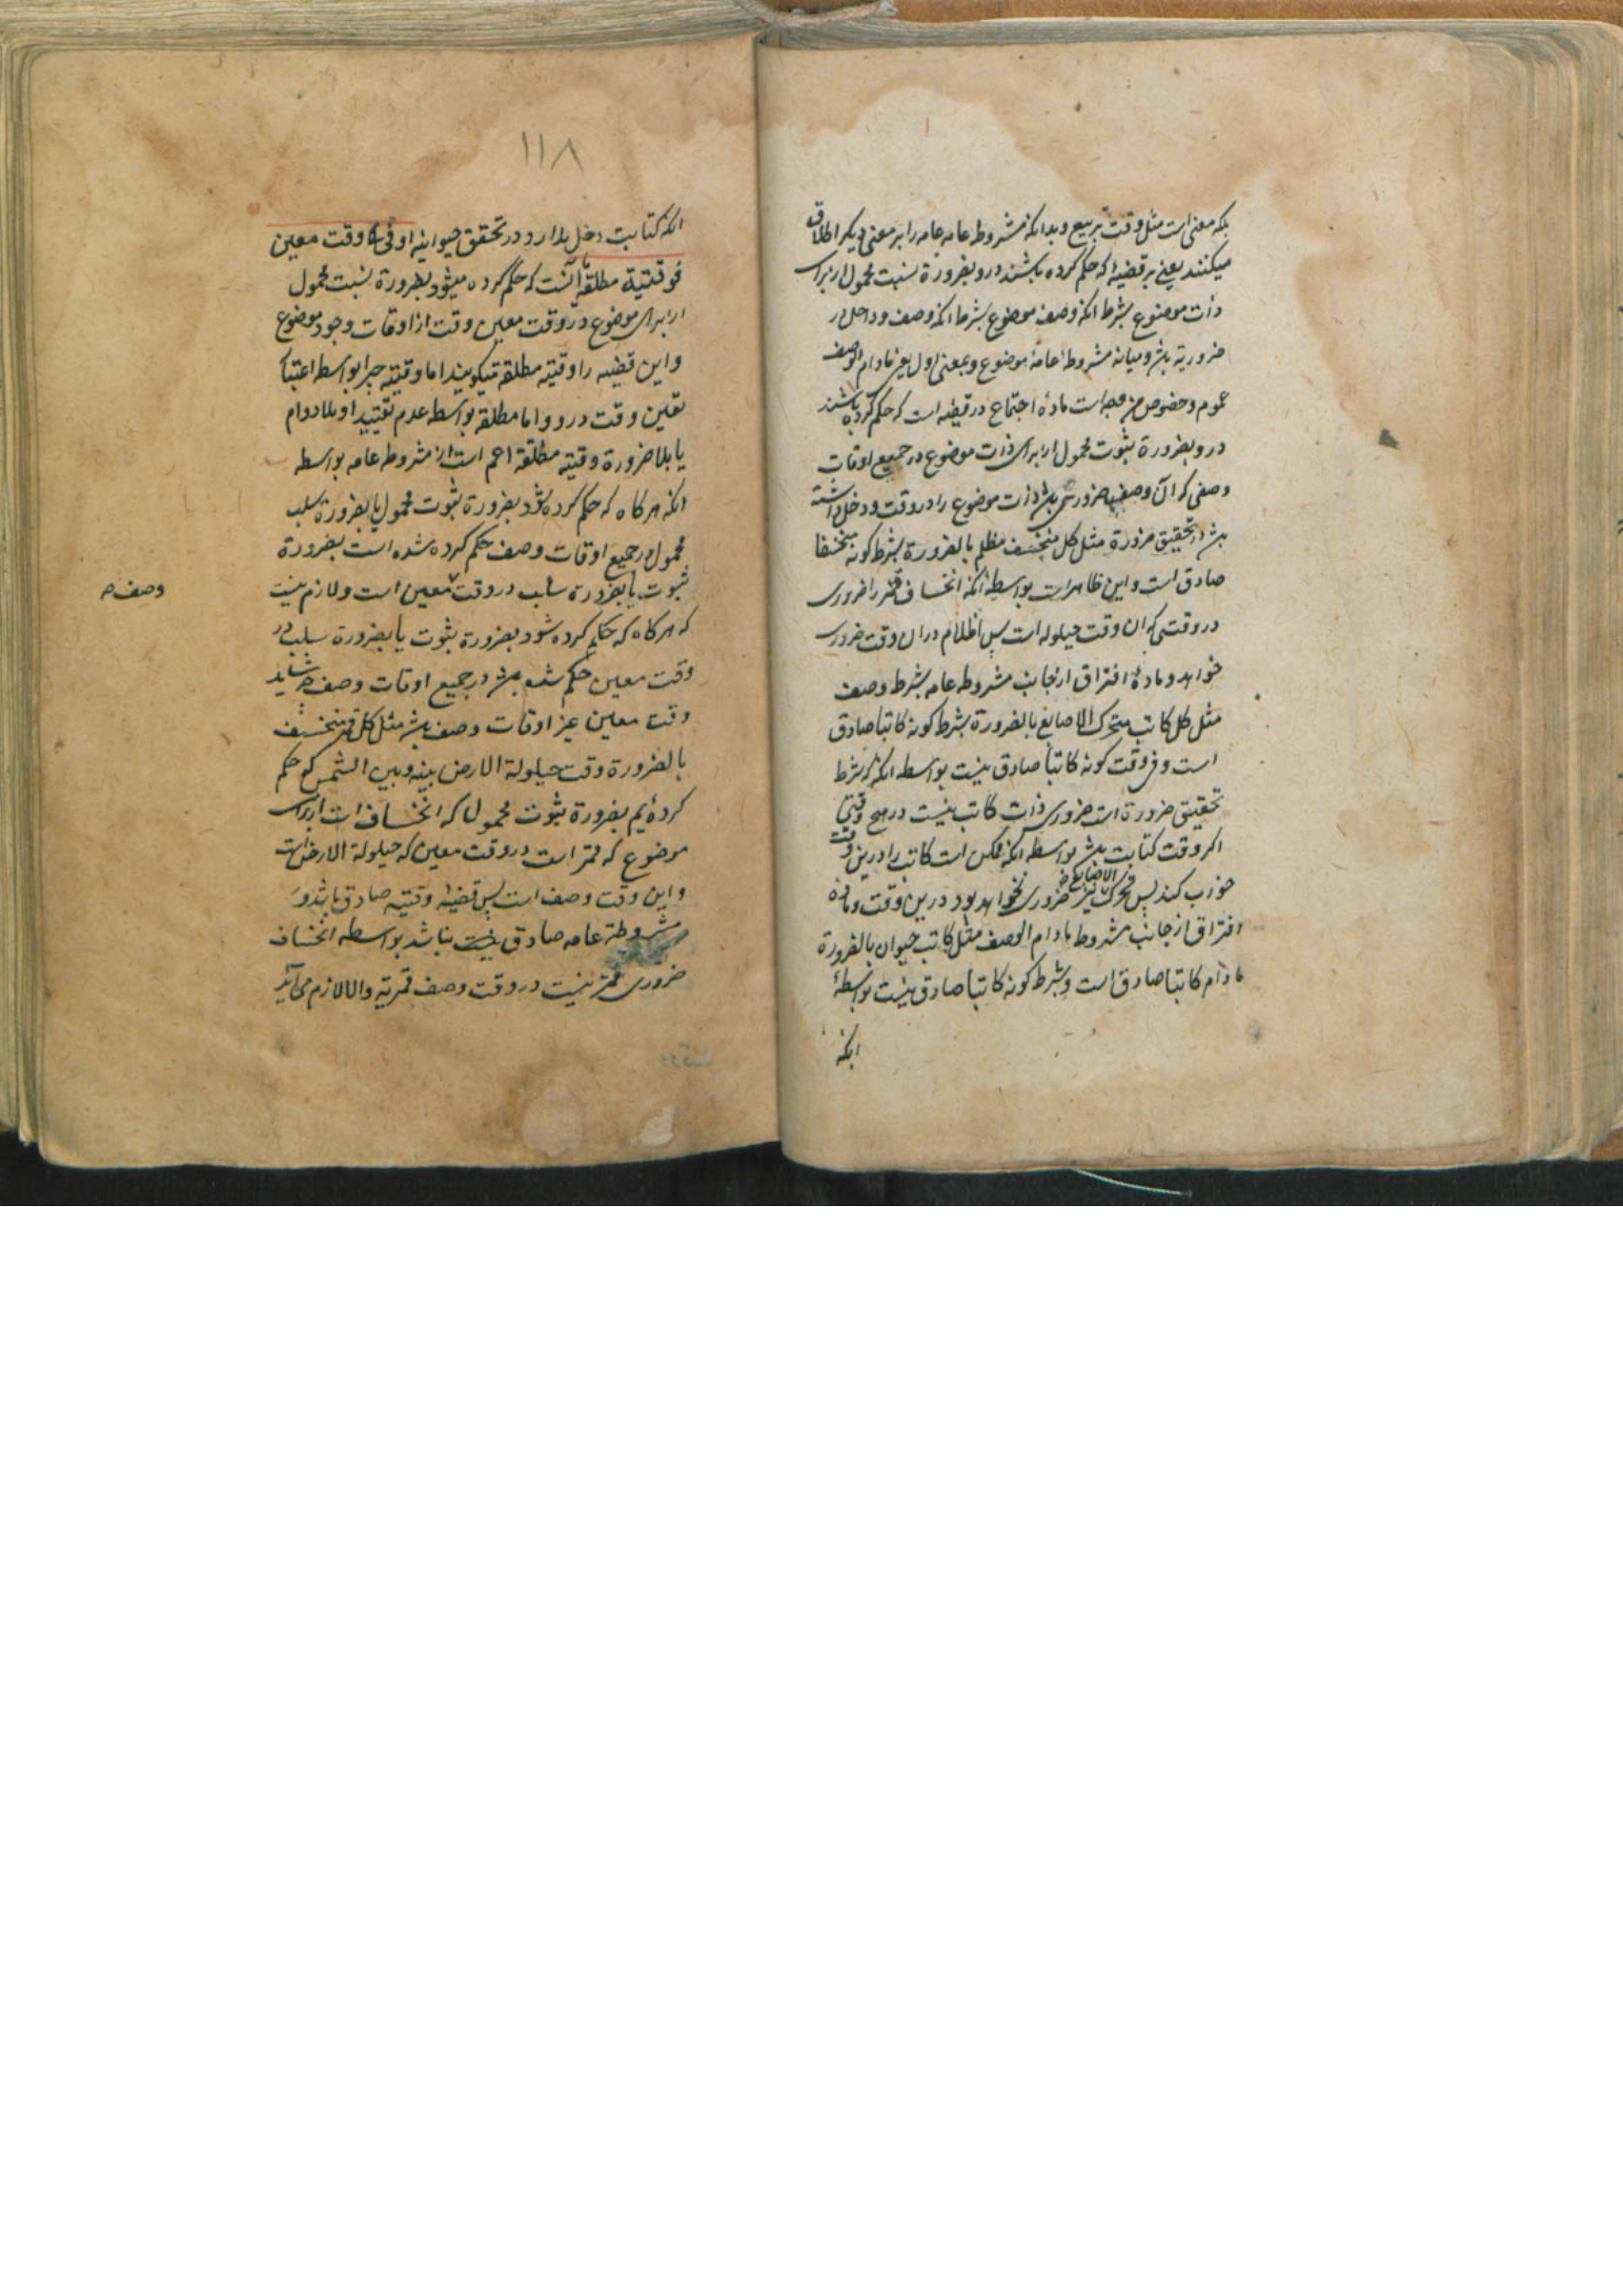 بلکه معنی است مثل وقت تربیع و بدانکه مشروطه عامه عامه را بر معنی دیگر اطلاق
میکنند یعنی بر قضیه که حکم کرده باشند درو بضرورة نسبت محمول از برای
ذات موضوع بشرط انکه وصف موضوع بشرط انکه وصف و داخل در
ضروریه باشد و میانه مشروطه عامه موضوع و بمعنی اول یعنی مادام الوصف
عموم و خصوص من وجه است مادهٔ اجتماع در قضیه است که حکم کرده باشند
درو بضرورة ثبوت محمول از برای ذات موضوع در جمیع اوقات
وصفی که آن وصف ضروری باشد ذات موضوع را در وقت و دخل داشته
باشد در تحقیق ضرورة مثل کل منخسف مظلم بالضرورة بشرط کونه منخسفا
صادق است و این ظاهر است بواسطه انکه انخساف قمر را ضروری
در وقتی که ان وقت حیلوله است پس اظلام در ان وقت ضروری
خواهد و مادهٔ افتراق از جانب مشروطه عامه بشرط وصف
مثل کل کاتب متحرک الاصابع بالضرورة بشرط کونه کاتبا صادق
است و فی وقت کونه کاتبا صادق نیست بواسطه انکه که شرط
تحقیق ضرورة است ضروری ذات کاتب نیست در هیچ وقتی
اکر وقت کتابت باشد بواسطه انکه ممکن است کاتب را درین وقت
خواب کند پس تحرک الاصابع نیز ضروری نخواهد بود درین وقت و ماده
افتراق از جانب مشروطه مادام الوصف مثل کاتب حیوان بالضرورة
مادام کاتبا صادق است و بشرط کونه کاتبا صادق نیست بواسطهٔ
انکه
١١٨
انکه کتابت دخل ندارد در تحقق حیوانیه او فی وقت معین
فوقتیة مطلقة آنست که حکم کرده میشود بضرورة نسبت محمول
از برای موضوع در وقت معین وقت از اوقات وجود موضوع
و این قضیه را وقتیه مطلقه میکویند اما وقتیه جهر بواسطه اعتبار
تعین وقت درو و اما مطلقه بواسطه عدم تقیید او بلا دوام
یا بلا ضرورة وقتیه مطلقه اعم است از مشروطه عامه بواسطه
انکه هرکاه که حکم کرده شود بضرورة ثبوت محمول یا بضرورة سلب
محمول در جمیع اوقات وصف حکم کرده شده است بضرورة
ثبوت یا بضرورة سلب در وقت معین است و لازم نیست
که هرکاه که حکم کرده شود بضرورة ثبوت یا بضرورة سلب در
وقت معین حکم شده باشد در جمیع اوقات وصف چه شاید
وقت معین غیر اوقات وصف باشد مثل کل قمر منخسف
بالضرورة وقت حیلولة الارض بینه و بین الشمس که حکم
کرده‌ایم بضرورة ثبوت محمول را که انخساف است از برای
موضوع که قمر است در وقت معین که حیلولة الارض است
و این وقت وصف است پس قضیه وقتیه صادق باشد و
مشروطه عامه صادق نباشد بواسطه انخساف
ضروری قمر نیست در وقت وصف قمریه و الا لازم می‌آید
وصف